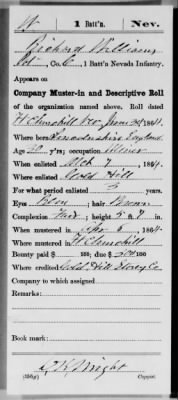 W | 1 Batt'n. | Nev.
Richard Williams
Co. C, 1 Batt'n Nevada Infantry.
Appears on
Company Muster-in and Descriptive Roll
of the organization named above. Roll dated
Ft Churchill Nev June 30, 1864.
Where born Lincolnshire England
Age 20 y'rs; occupation Miner
When enlisted Mch 7, 1864.
Where enlisted Gold Hill
For what period enlisted 3 years.
Eyes ; hair Brown
Complexion Fair; height 5 ft. in.
When mustered in Apr 6, 1864
Where mustered in Ft Churchill
Bounty paid $ 100; due $ 100
Where credited Gold Hill Storey Co
Company to which assigned
Remarks:
Book mark:
Wright
Copyist.